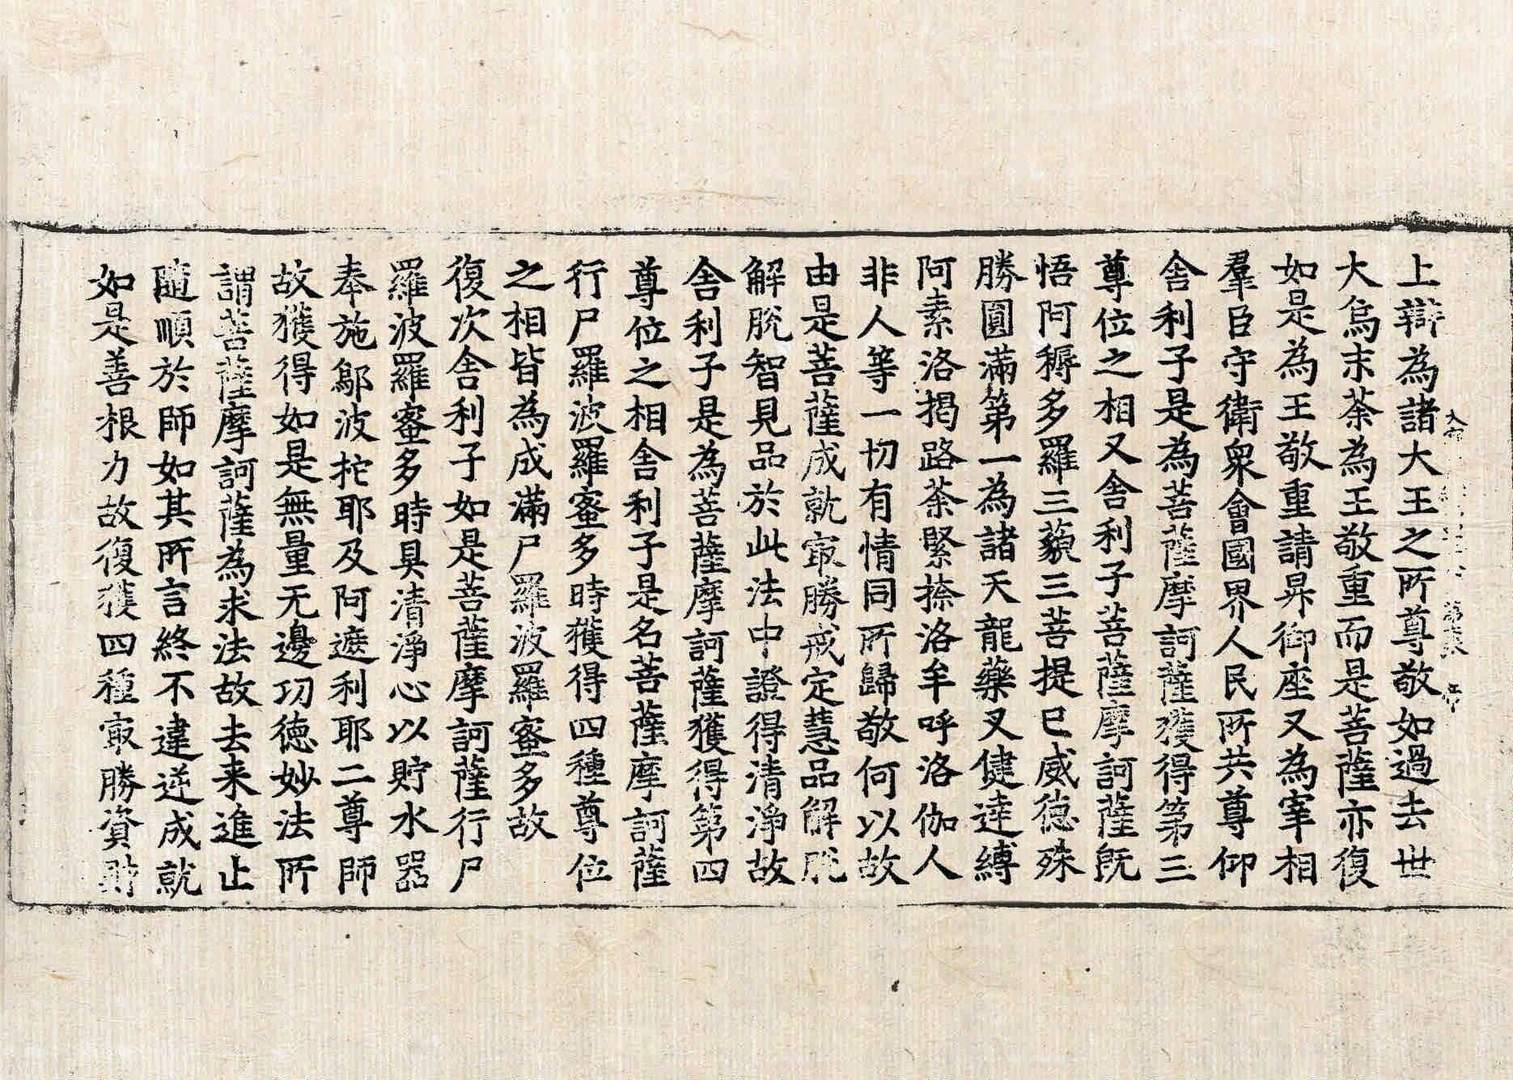 上辯為諸大王之所尊敬如過去世
大烏末荼為王敬重而是菩薩亦復
如是為王敬重請昇御座又為宰相
羣臣守衛眾會國界人民所共尊仰
舍利子是為菩薩摩訶薩獲得第三
尊位之相又舍利子菩薩摩訶薩既
悟阿耨多羅三藐三菩提已威德殊
勝圓滿第一為諸天龍藥叉健達縛
阿素洛揭路荼緊捺洛牟呼洛伽人
非人等一切有情同所歸敬何以故
由是菩薩成就㝡勝戒定慧品解脫
解脫智見品於此法中證得清淨故
舍利子是為菩薩摩訶薩獲得第四
尊位之相舍利子是名菩薩摩訶薩
行尸羅波羅蜜多時獲得四種尊位
之相皆為成滿尸羅波羅蜜多故
復次舍利子如是菩薩摩訶薩行尸
羅波羅蜜多時具清淨心以貯水器
奉施鄔波柁耶及阿遮利耶二尊師
故獲得如是無量无邊功德妙法所
謂菩薩摩訶薩為求法故去来進止
隨順於師如其所言終不違逆成就
如是善根力故復獲四種㝡勝資財